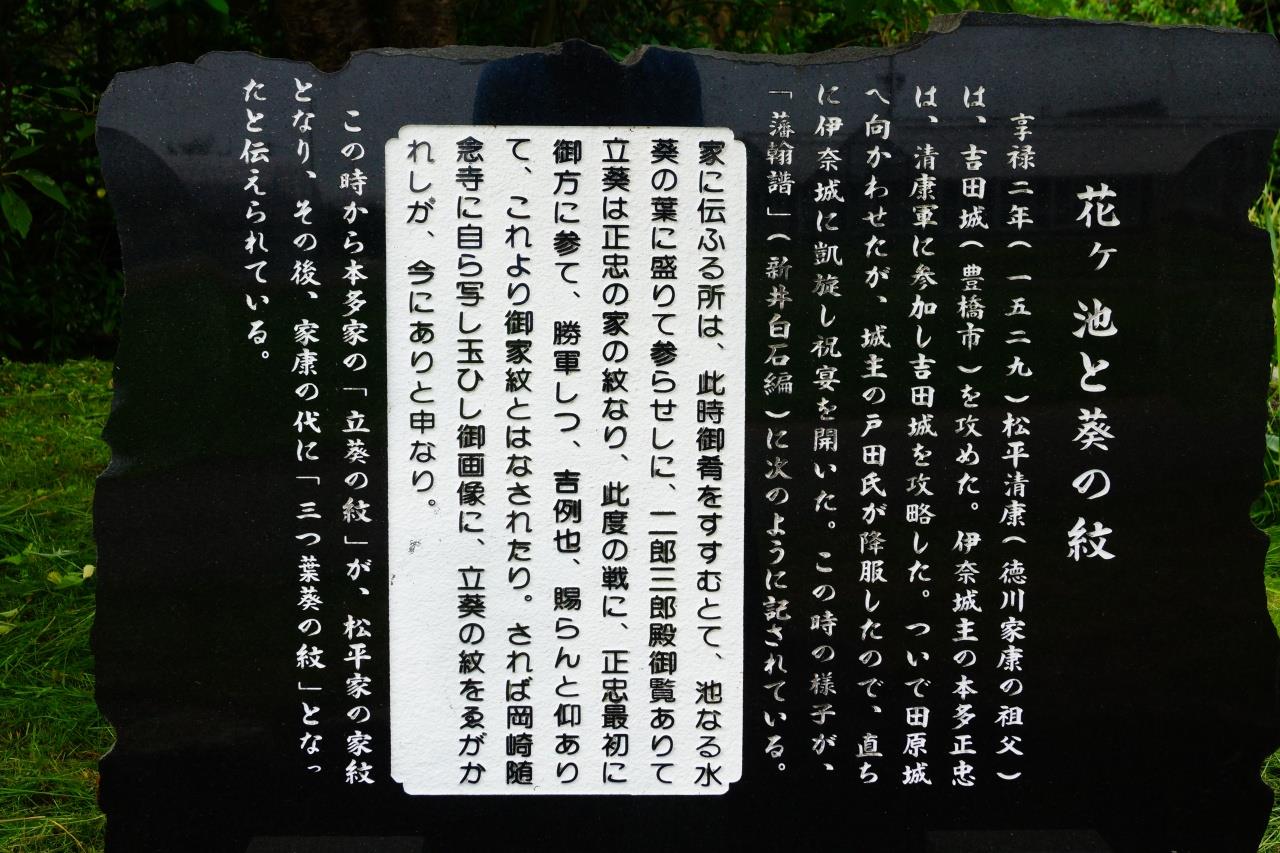 花ヶ池と葵の紋
享禄二年(一五二九)松平清康(徳川家康の祖父)
は、吉田城(豊橋市)を攻めた。伊奈城主の本多正忠
は、清康軍に参加し吉田城を攻略した。ついで田原城
へ向かわせたが、城主の戸田氏が降服したので、直ち
に伊奈城に凱旋し祝宴を開いた。この時の様子が、
「藩翰譜」(新井白石編)に次のように記されている。
家に伝ふる所は、此時御肴をすすむとて、池なる水
葵の葉に盛りて参らせしに、二郎三郎殿御覧ありて
立葵は正忠の家の紋なり、此度の戦に、正忠最初に
御方に参て、勝軍しつ、吉例也、賜らんと仰あり
て、これより御家紋とはなされたり。されば岡崎随
念寺に自ら写し玉ひし御画像に、立葵の紋をゑがか
れしが、今にありと申なり。
この時から本多家の「立葵の紋」が、松平家の家紋
となり、その後、家康の代に「三つ葉葵の紋」となっ
たと伝えられている。